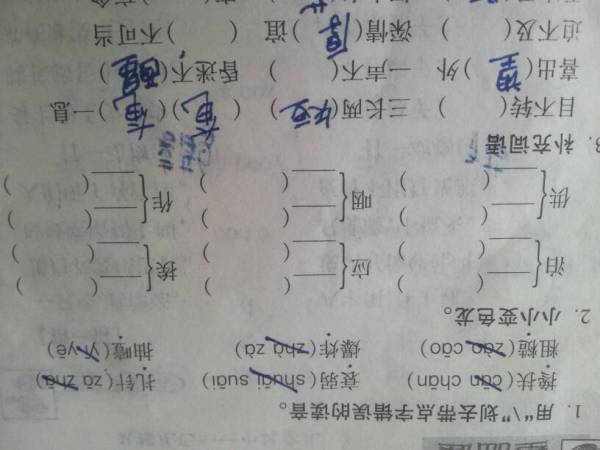 1. 用“\”划去带点字错误的读音。
搀扶(cān chān) 衰弱(shuāi suāi) 扎针(zā zhā)
粗糙(zào cāo) 爆炸(zhà zā) 抽噎(yì yē)
2. 小小变色龙。
泊{ ( ) 应{ ( ) 挨{ ( )
( ) ( ) ( )
供{ ( ) 咽{ ( ) 作{ ( )
( ) ( ) ( )
3. 补充词语
目不转( ) 三长两(短) (奄)(奄)一息
喜出(望)外 一声不( ) 昏迷不(醒)
迫不及( ) 深情(厚)谊 ( )不可当